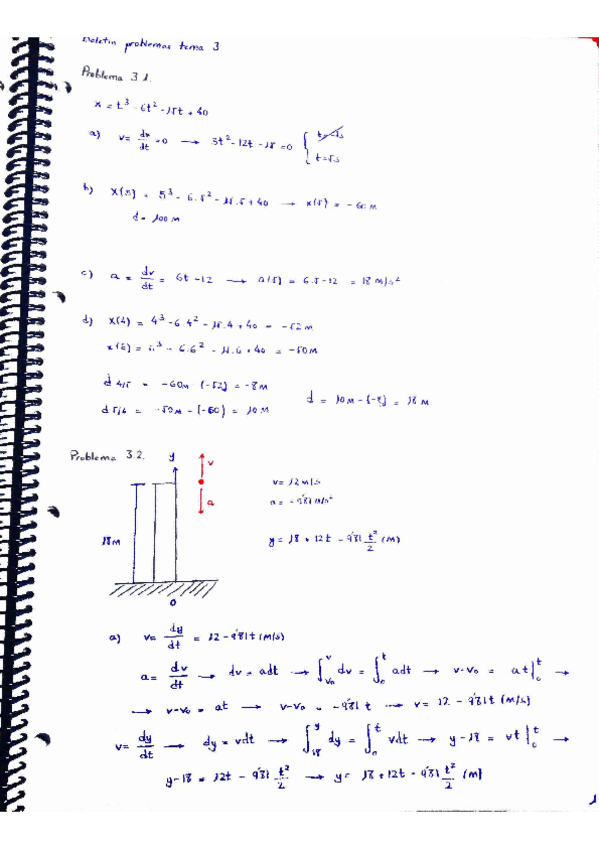 Boletín problemas tema 3
Problema 3.1.
x = t³ - 6t² - 15t + 40
a) v = dx/dt = 0 → 3t² - 12t - 15 = 0 { t = -1s
t = 5s
b) x(5) = 5³ - 6·5² - 15·5 + 40 → x(5) = -60 m
d = 100 m
c) a = dv/dt = 6t - 12 → a(5) = 6·5 - 12 = 18 m/s²
d) x(4) = 4³ - 6·4² - 15·4 + 40 = -52 m
x(6) = 6³ - 6·6² - 15·6 + 40 = -50 m
d 4/5 = -60m - (-52) = -8 m
d 5/6 = -50m - (-60) = 10 m
d = 10m - (-8) = 18 m
Problema 3.2.
y
v
a
18m
0
v = 12 m/s
a = -9'81 m/s²
y = 18 + 12t - 9'81 t²/2 (m)
a) v = dy/dt = 12 - 9'81t (m/s)
a = dv/dt → dv = adt → ∫ᵥ₀ᵛ dv = ∫₀ᵗ adt → v-v₀ = at|₀ᵗ →
→ v-v₀ = at → v-v₀ = -9'81t → v = 12 - 9'81t (m/s)
v = dy/dt → dy = vdt → ∫₁₈ʸ dy = ∫₀ᵗ vdt → y-18 = vt|₀ᵗ →
y-18 = 12t - 9'81 t²/2 → y = 18 + 12t - 9'81 t²/2 (m)